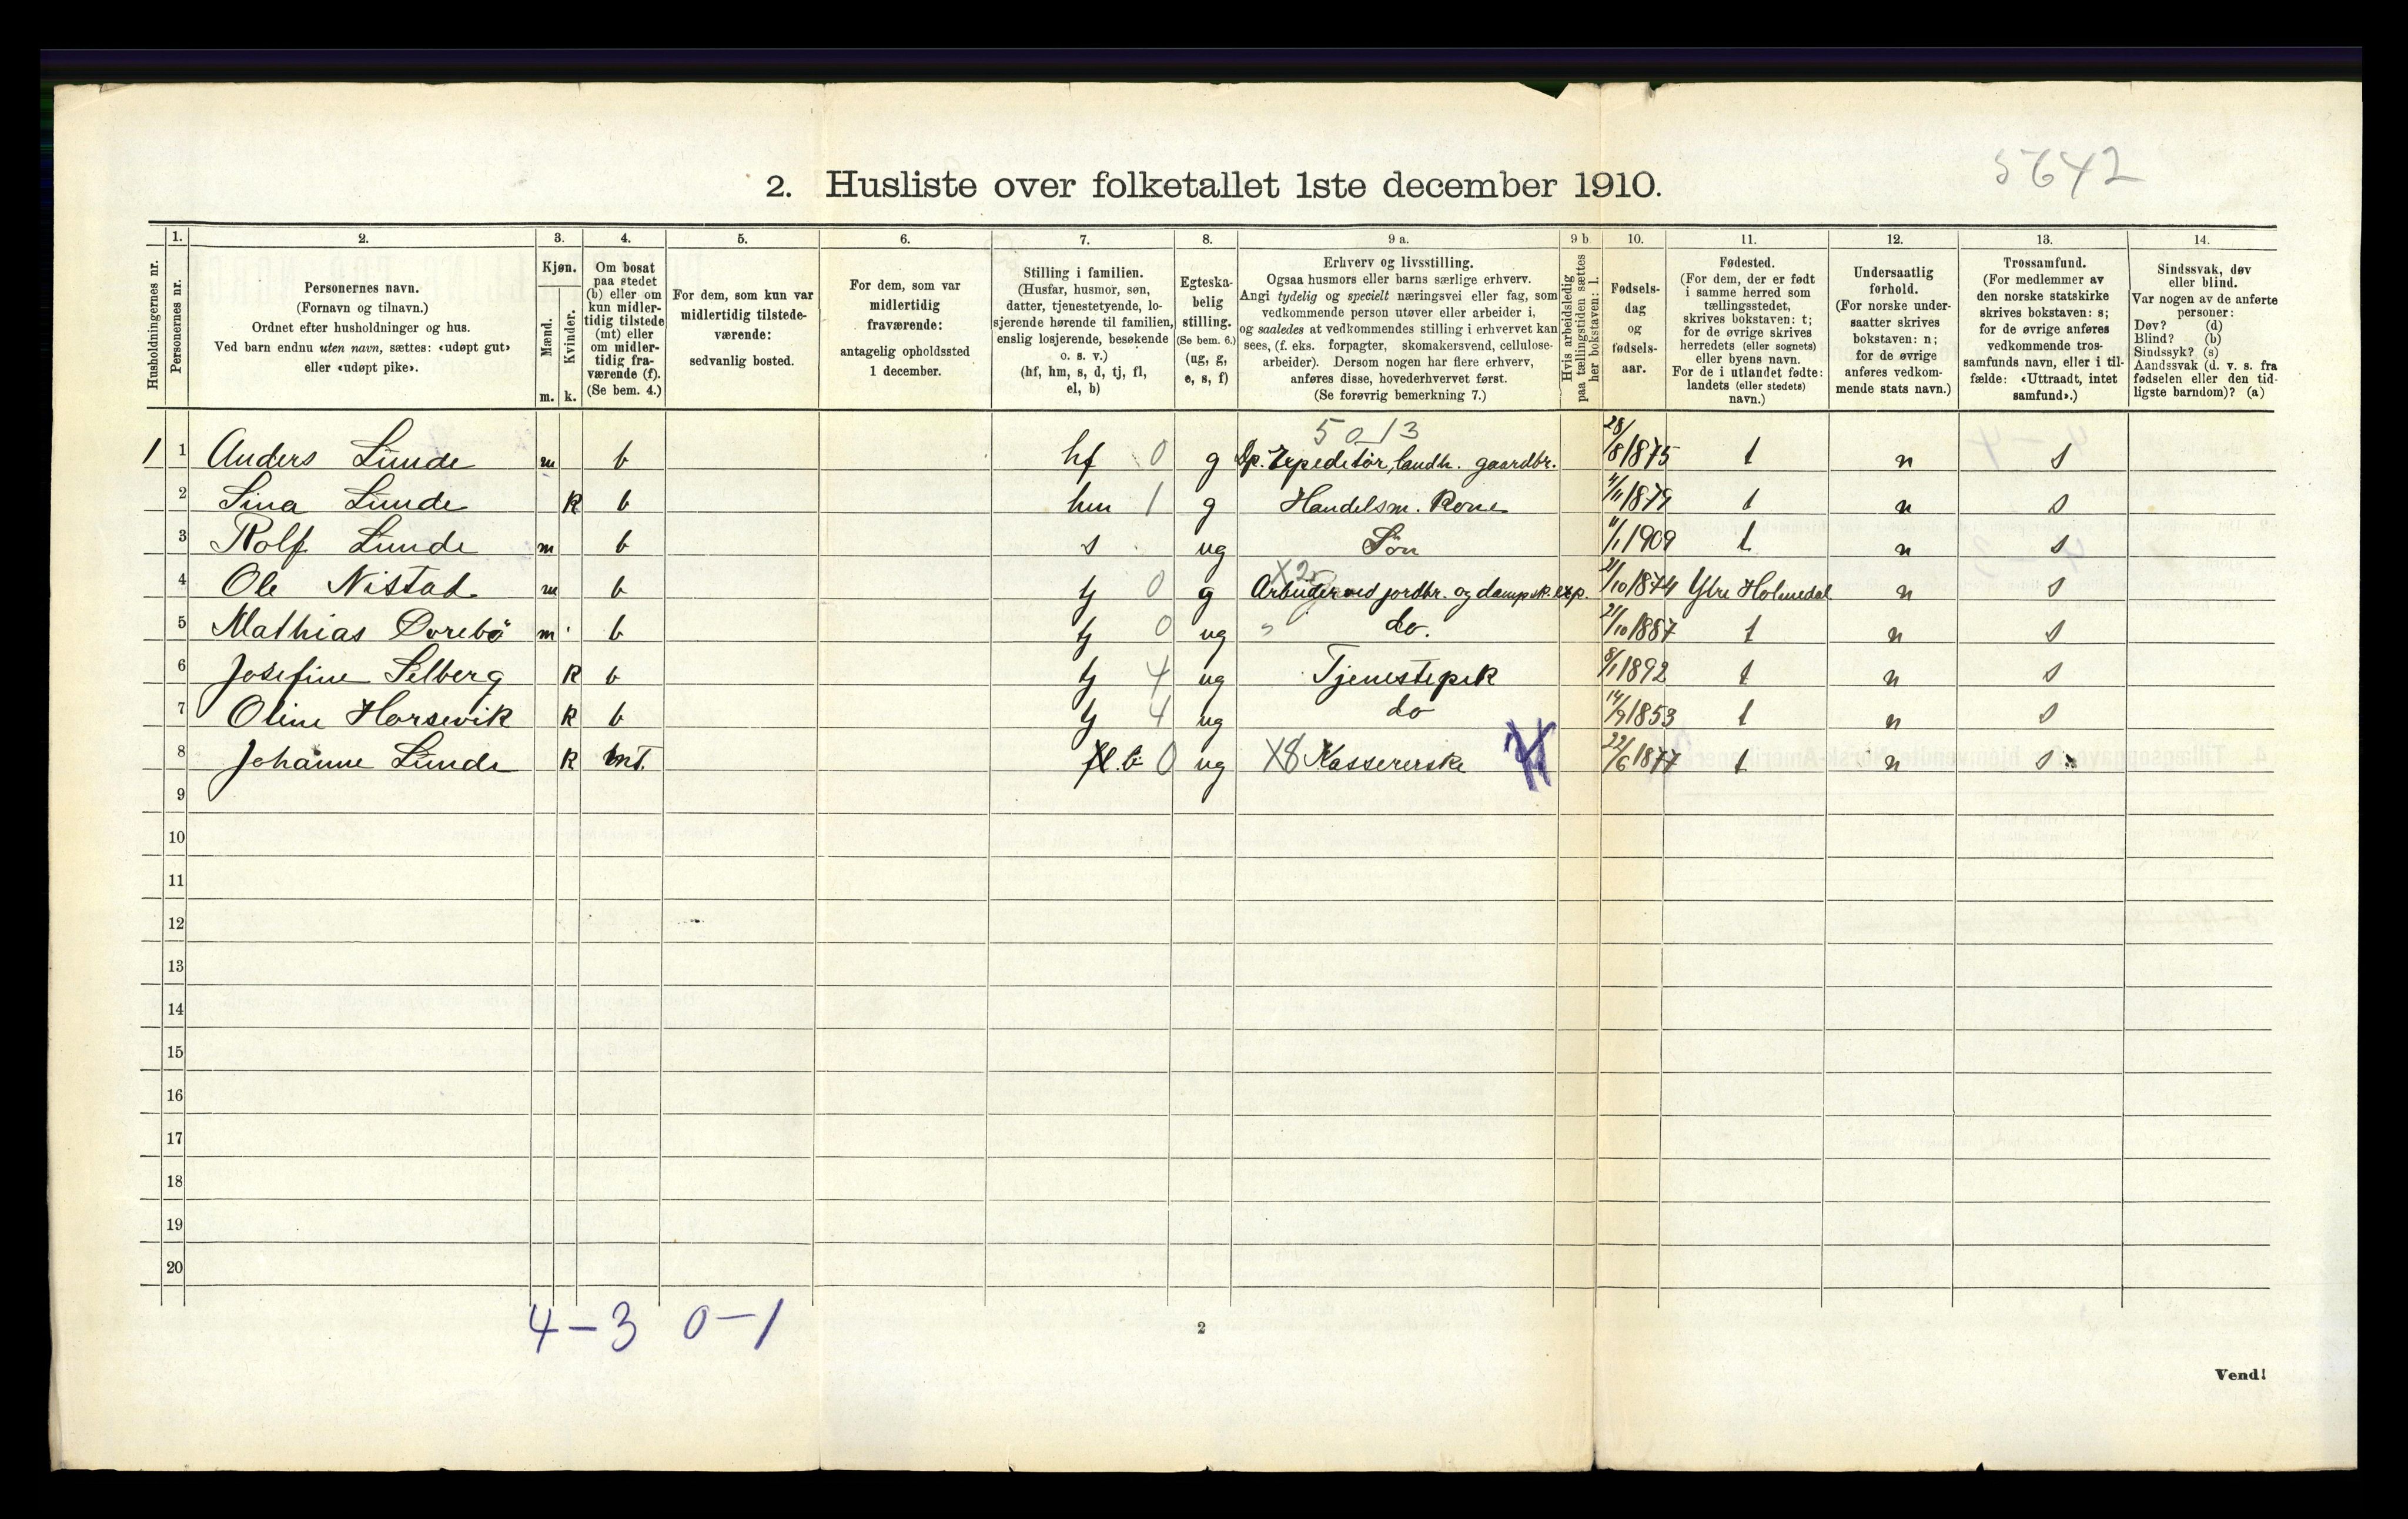 5642
2. Husliste over folketallet 1ste december 1910.
Husholdningernes nr.
1.
Personernes nr.
2.
Personernes navn.
(Fornavn og tilnavn.)
Ordnet efter husholdninger og hus.
Ved barn endnu uten navn, sættes: «udøpt gut»
eller «udøpt pike».
3.
Kjøn.
Mænd.
Kvinder.
m. k.
4.
Om bosat
paa stedet
(b) eller om
kun midler-
tidig tilstede
(mt) eller
om midler-
tidig fra-
værende (f).
(Se bem. 4.)
5.
For dem, som kun var
midlertidig tilstede-
værende:
sedvanlig bosted.
6.
For dem, som var
midlertidig
fraværende:
antagelig opholdssted
1 december.
7.
Stilling i familien.
(Husfar, husmor, søn,
datter, tjenestetyende, lo-
sjerende hørende til familien,
enslig losjerende, besøkende
o. s. v.)
(hf, hm, s, d, tj, fl,
el, b)
8.
Egteska-
belig
stilling.
(Se bem. 6.)
(ug, g,
e, s, f)
9 a.
Erhverv og livsstilling.
Ogsaa husmors eller barns særlige erhverv.
Angi tydelig og specielt næringsvei eller fag, som
vedkommende person utøver eller arbeider i,
og saaledes at vedkommendes stilling i erhvervet kan
sees, (f. eks. forpagter, skomakersvend, cellulose-
arbeider). Dersom nogen har flere erhverv,
anføres disse, hovederhvervet først.
(Se forøvrig bemerkning 7.)
9 b
Hvis arbeidsledig
paa tællingstiden sættes
her bokstaven: l.
10.
Fødsels-
dag
og
fødsels-
aar.
11.
Fødested.
(For dem, der er født
i samme herred som
tællingsstedet,
skrives bokstaven: t;
for de øvrige skrives
herredets (eller sognets)
eller byens navn.
For de i utlandet fødte:
landets (eller stedets)
navn.)
12.
Undersaatlig
forhold.
(For norske under-
saatter skrives
bokstaven: n;
for de øvrige
anføres vedkom-
mende stats navn.)
13.
Trossamfund.
(For medlemmer av
den norske statskirke
skrives bokstaven: s;
for de øvrige anføres
vedkommende tros-
samfunds navn, eller i til-
fælde: «Uttraadt, intet
samfund».)
14.
Sindssvak, døv
eller blind.
Var nogen av de anførte
personer:
Døv? (d)
Blind? (b)
Sindssyk? (s)
Aandssvak (d. v. s. fra
fødselen eller den tid-
ligste barndom)? (a)
5013
1 1 Anders Lunde m b hf 0 g Dp. Expeditør, landh. gaardbr. 28/8 1875 t n s
2 Sina Lunde k b hm 1 g Handelsm. Kone 4/11 1879 t n s
3 Rolf Lunde m b s ug Søn 11/1 1909 t n s
4 Ole Nistad m b tj 0 g Arbeider ved jordbr. og dampsk. exp. 21/10 1874 Ytre Holmedal n s
5 Mathias Dorebö m b tj 0 ug " do. 21/10 1887 t n s
6 Josefine Selberg k b tj 4 ug Tjenestepik 8/1 1892 t n s
7 Oline Horsevik k b tj 4 ug do 14/9 1853 t n s
8 Johanne Lunde k mt. b 0 ug X8 Kassererske 22/6 1877 t n s
9
10
11
12
13
14
15
16
17
18
19
20
4-3 0-1
2
Vend!